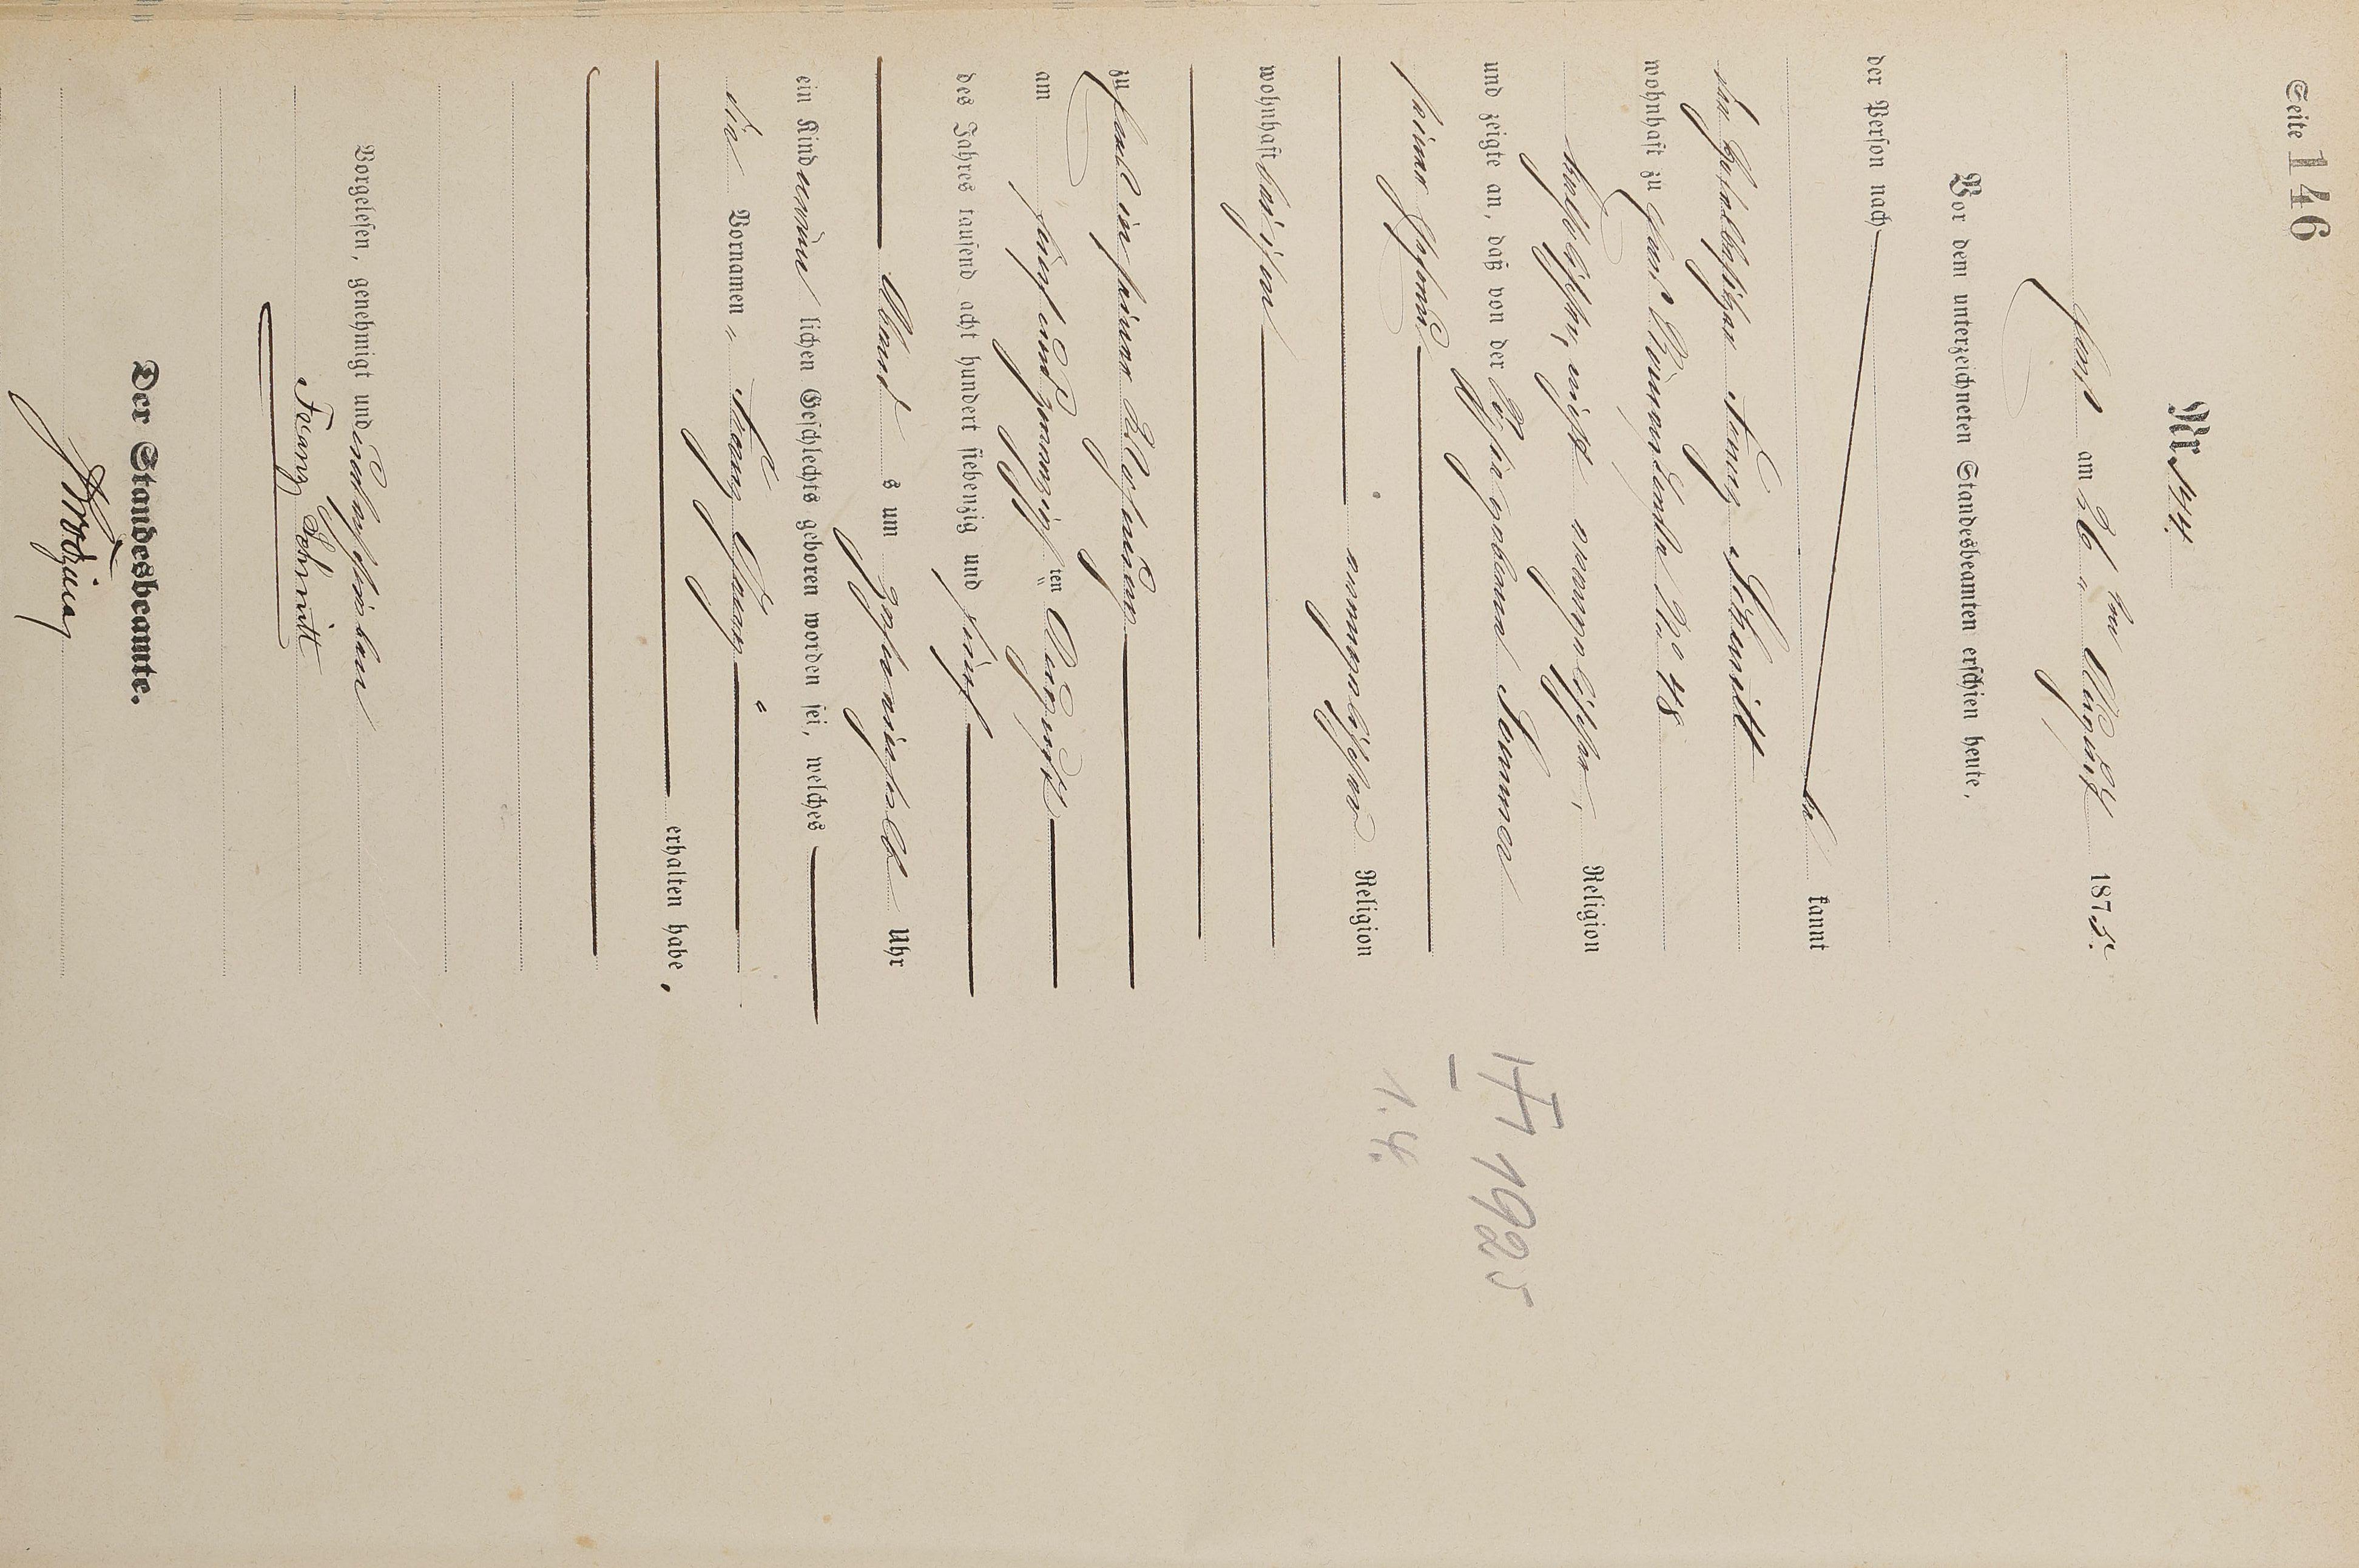 Seite 146
Nr. 144.
Forst am 26 ten August 1875.
Vor dem unterzeichneten Standesbeamten erschien heute,
der Person nach
be kannt
Franz Schmitt
wohnhaft zu Forst No 48
katholischer, nicht evangelischer, Religion
und zeigte an, daß von der geborenen Sommer
seiner Ehefrau
evangelischer Religion
wohnhaft bei ihm
zu Forst in seiner Wohnung
am fünf und zwanzigsten August
des Jahres tausend acht hundert siebenzig und fünf
Abend s um zehn einhalb Uhr
ein Kind männlichen Geschlechts geboren worden sei, welches
die Vornamen " Franz Georg "
erhalten habe.
Vorgelesen, genehmigt und unterschrieben
Franz Schmitt
Der Standesbeamte.
H 1925
1.4.